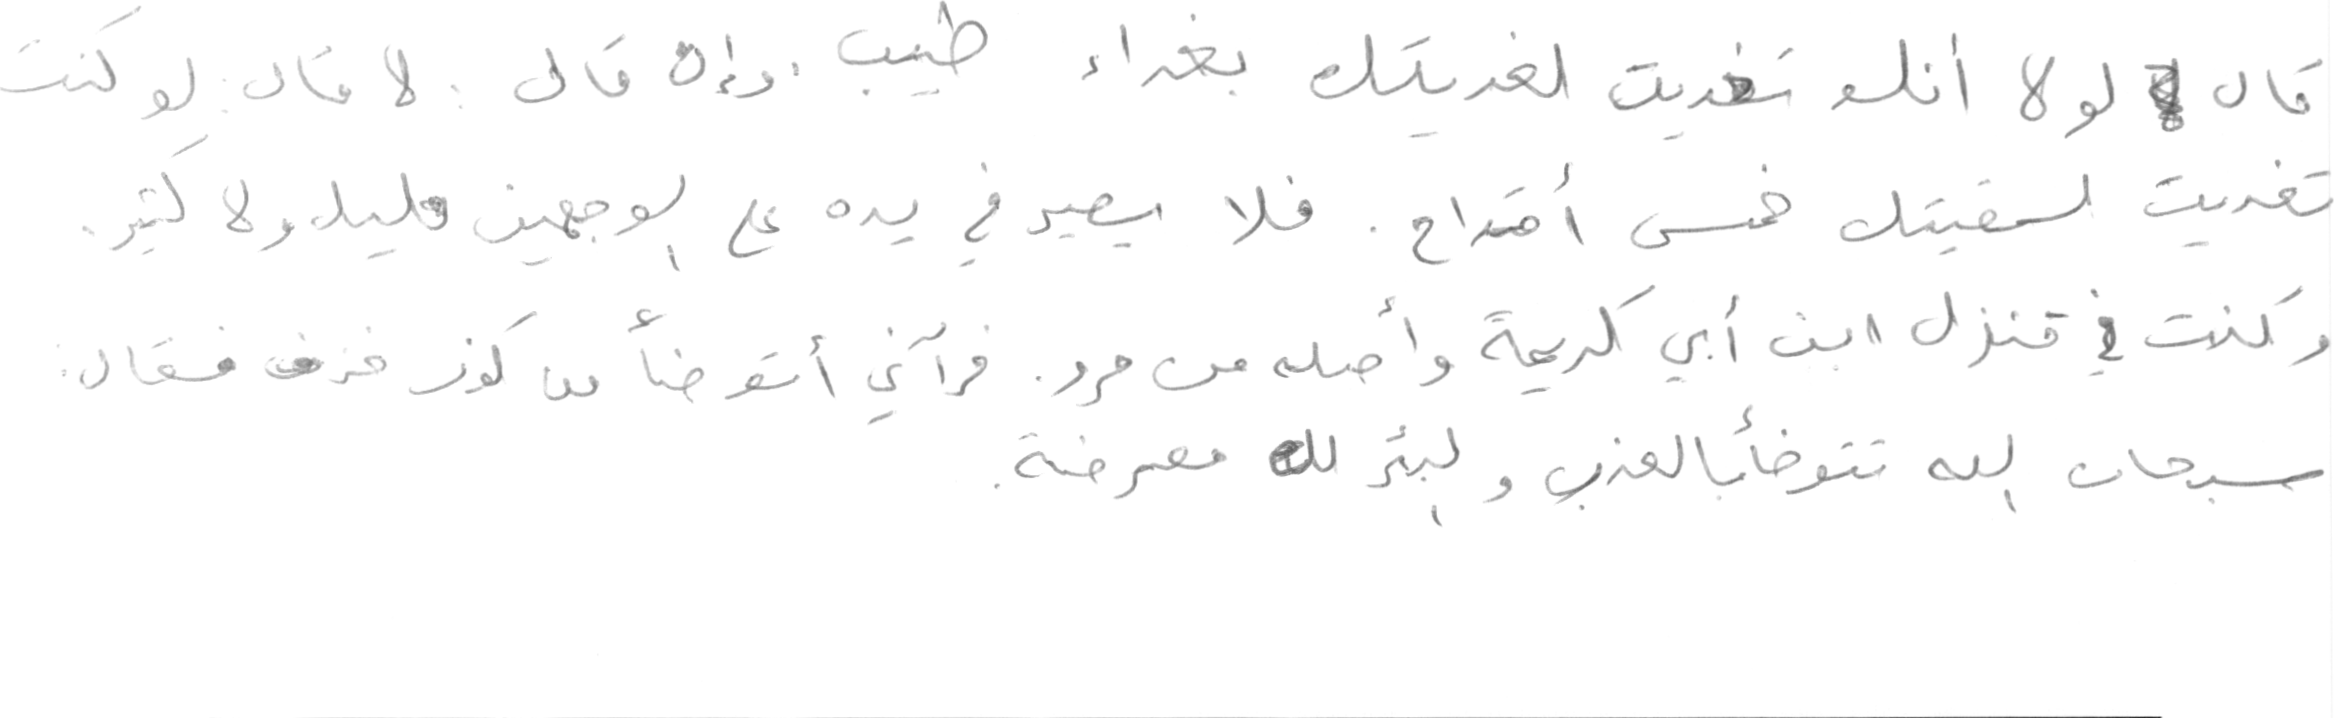 قال لولا أنك تغديت لغديتك بغداء طيب. وإن قال: لا قال: لو كنت
تغديت لسقيتك خمس أقداح. فلا يصير في يده على الوجهين قليل ولا كثير.
وكنت في منزل ابن أبي كريمة وأصله من مرو. فرآني أتوضأ من كوز خزف فقال:
سبحان الله تتوضأ بالعذب والبئر لك معرضة.